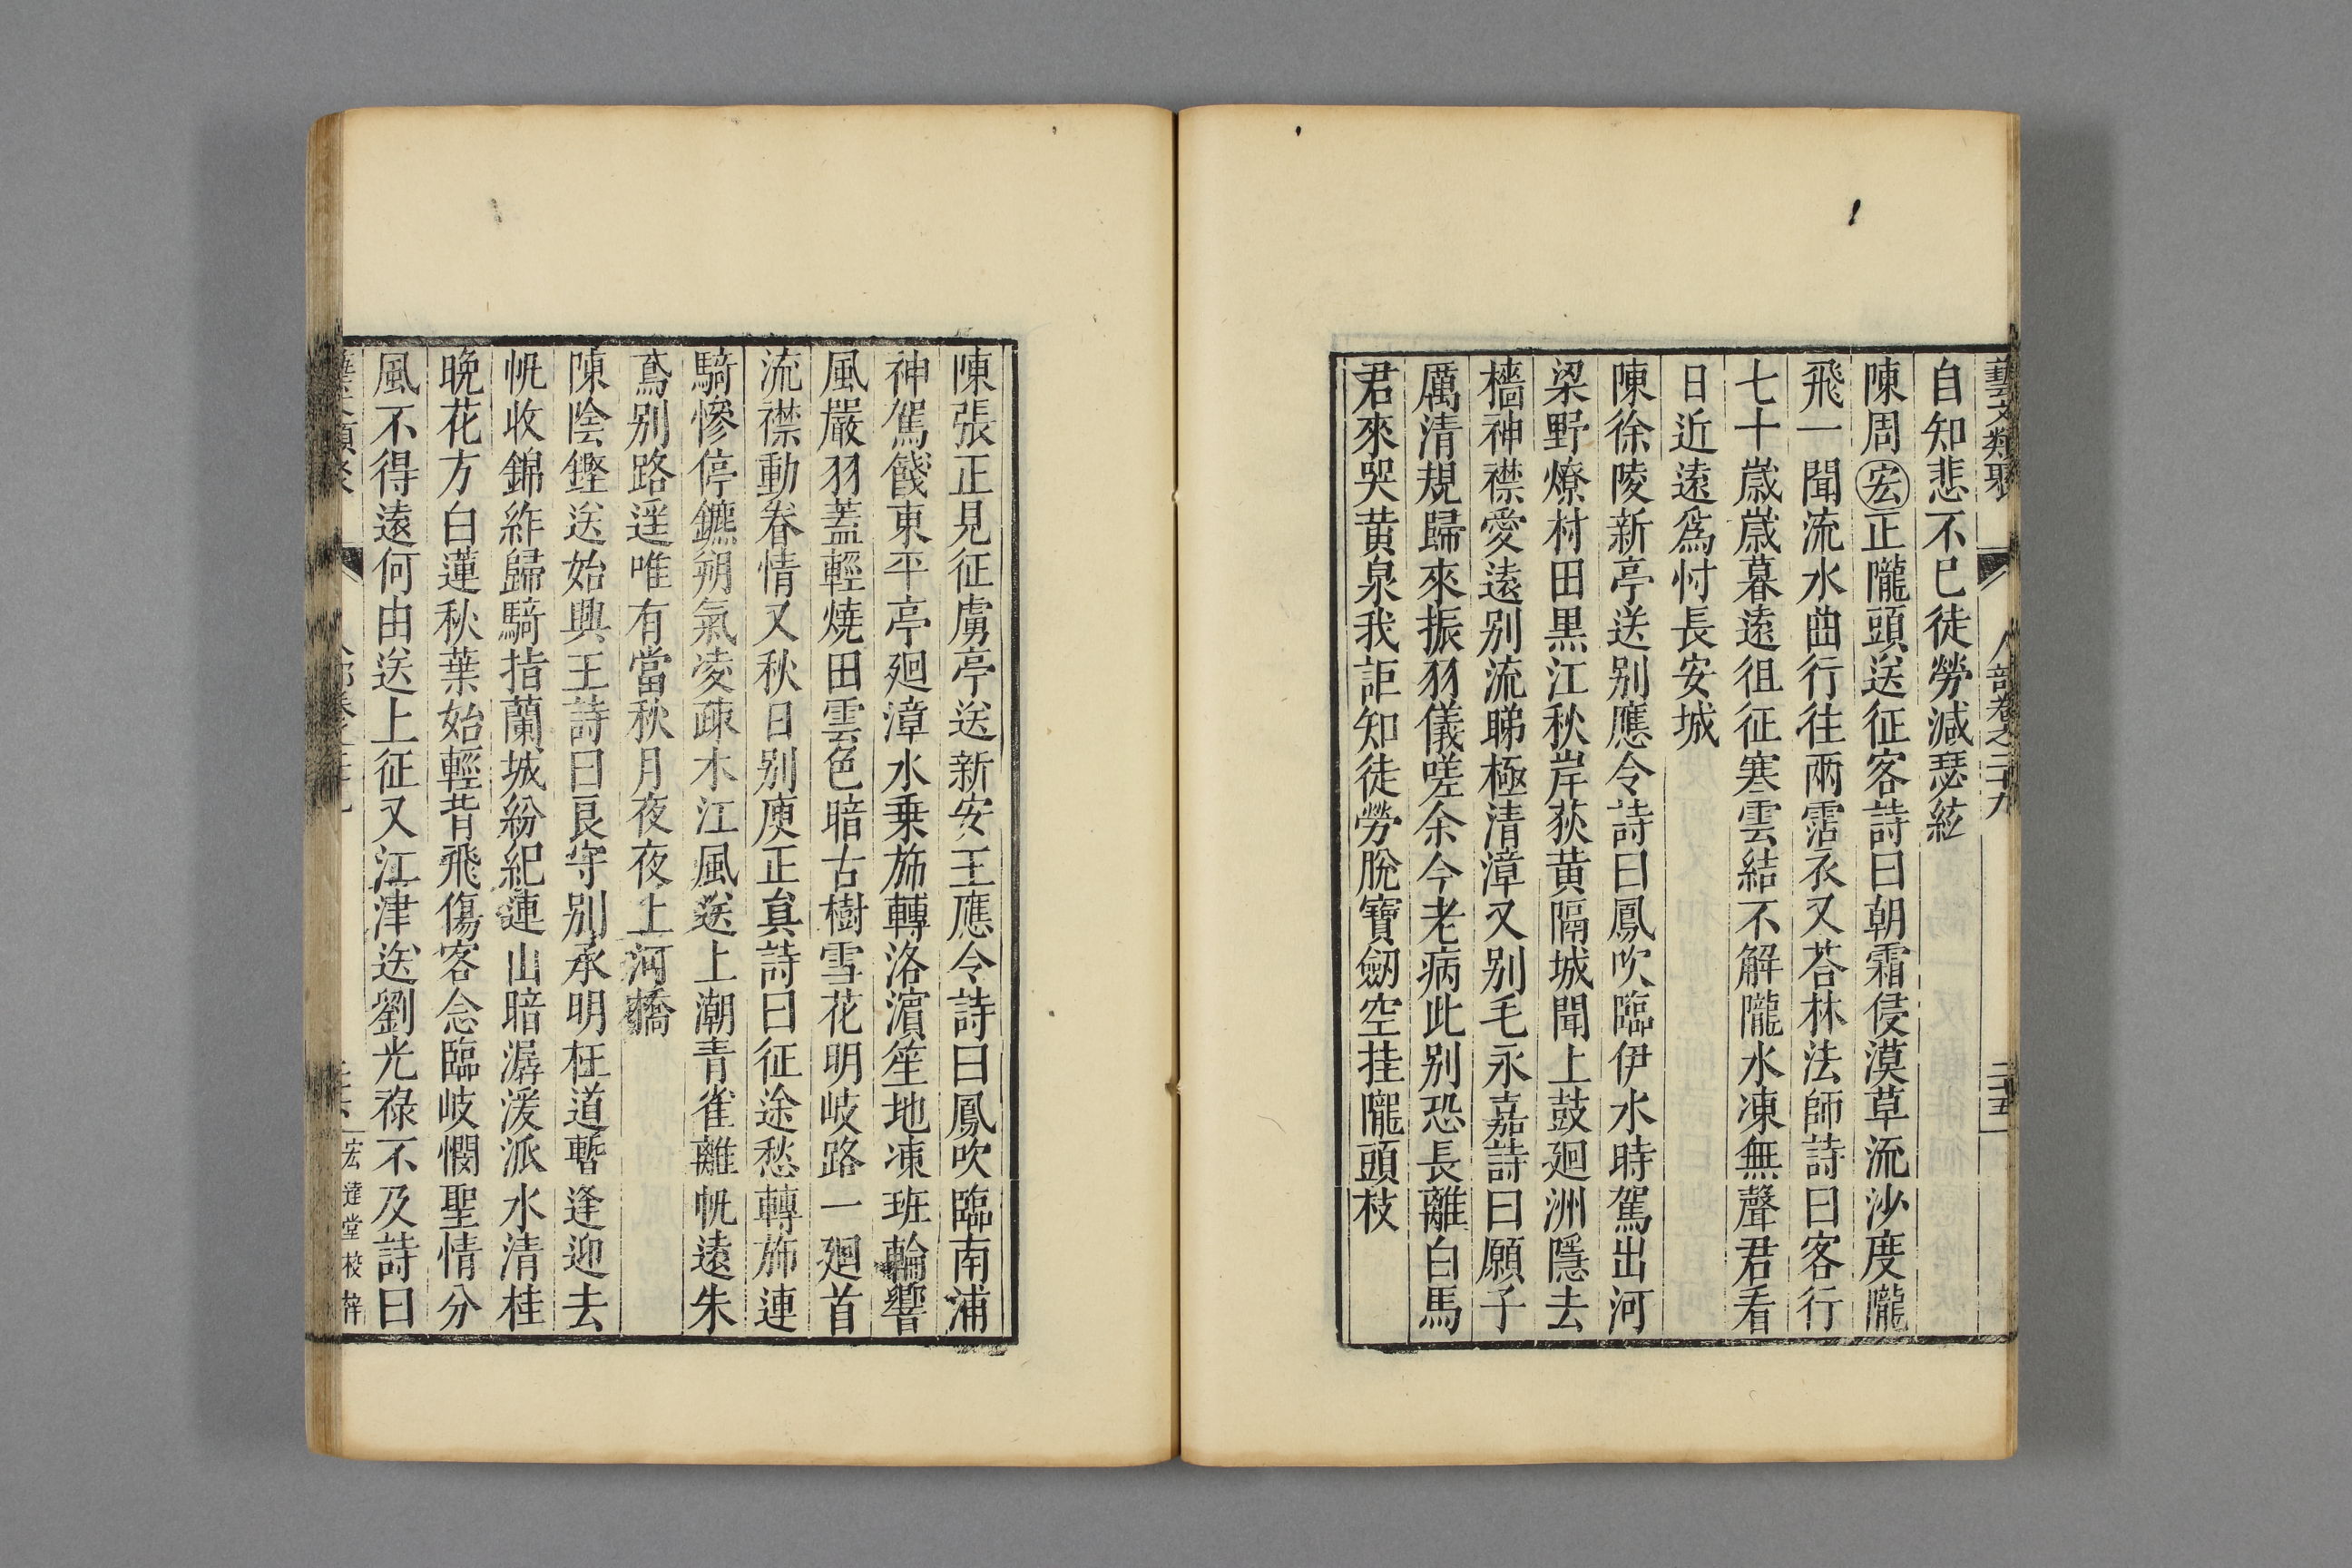 藝文類聚 人部卷之二十九 二十五
自知悲不已徒勞減瑟絃
陳周宏正隴頭送征客詩曰朝霜侵漠草流沙度隴
飛一聞流水曲行往兩霑衣又荅林法師詩曰客行
七十歲歲暮遠徂征寒雲結不解隴水凍無聲君看
日近遠爲忖長安城
陳徐陵新亭送别應令詩曰鳳吹臨伊水時駕出河
梁野燎村田黒江秋岸荻黄隔城聞上鼓廻洲隱去
檣神襟愛遠别流睇極清漳又别毛永嘉詩曰願子
厲清規歸來振羽儀嗟余今老病此别恐長離白馬
君來哭黄泉我詎知徒勞脫寶劒空挂隴頭枝
陳張正見征虜亭送新安王應令詩曰鳳吹臨南浦
神駕餞東平亭廻漳水乗旆轉洛濵笙地凍班輪響
風嚴羽蓋輕燒田雲色暗古樹雪花明岐路一廻首
流襟動眷情又秋日别庾正貟詩曰征途愁轉旆連
騎慘停鑣朔氣凌疎木江風送上潮青雀離帆遠朱
鳶别路遥唯有當秋月夜夜上河橋
陳陰鏗送始興王詩曰良守别承明枉道暫逢迎去
帆收錦䋏歸騎指蘭城紛紀連山暗潺湲派水清桂
晚花方白蓮秋葉始輕背飛傷客念臨岐憫聖情分
風不得遠何由送上征又江津送劉光祿不及詩曰
宏達堂校梓